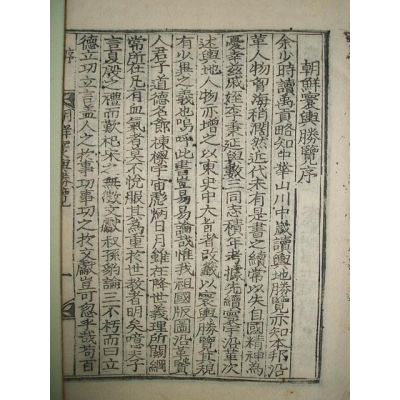 朝鮮寰輿勝覽序
余少時讀禹貢略知中華山川中歲讀輿地勝覽亦知本邦沿
革人物嘗海稍闊然近代未有是書之續常以失自國精神爲
憂幸茲戚姪李秉延與數三同志積年考據先續寰宇沿革次
述輿地人物亦增之以東史中大旨者改籤以寰輿勝覽其規
有少異之義也嗚呼此書豈易易論哉惟我祖國版圖沿革賢
人君子道德名節棟樑宇宙彪炳日月雖在降世義理所關綱
常所在凡有血氣者莫不悅服其爲重於世敎者明矣噫夫子
言夏殷之禮而歎杞宋之無徵文獻叔孫豹論三不朽而曰立
德立功立言盖人之於事功事功之於文獻豈可忽乎哉苟百
朝鮮寰輿勝覽